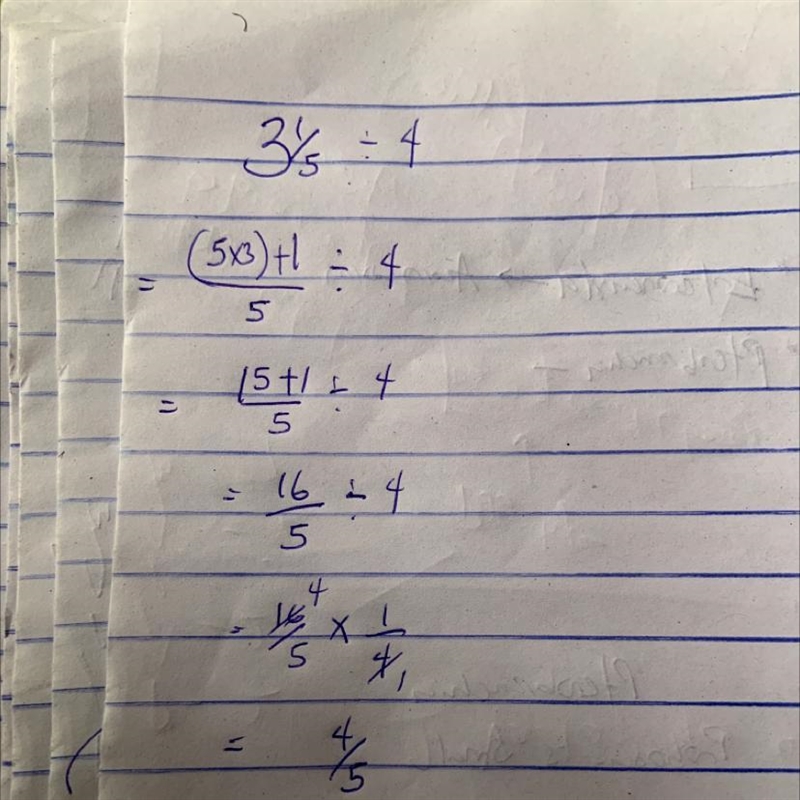 3 1/5 ÷ 4
= (5x3)+1/5 ÷ 4
= 15+1/5 ÷ 4
= 16/5 ÷ 4
= 16/5 4 x 1/4 1
= 4/5